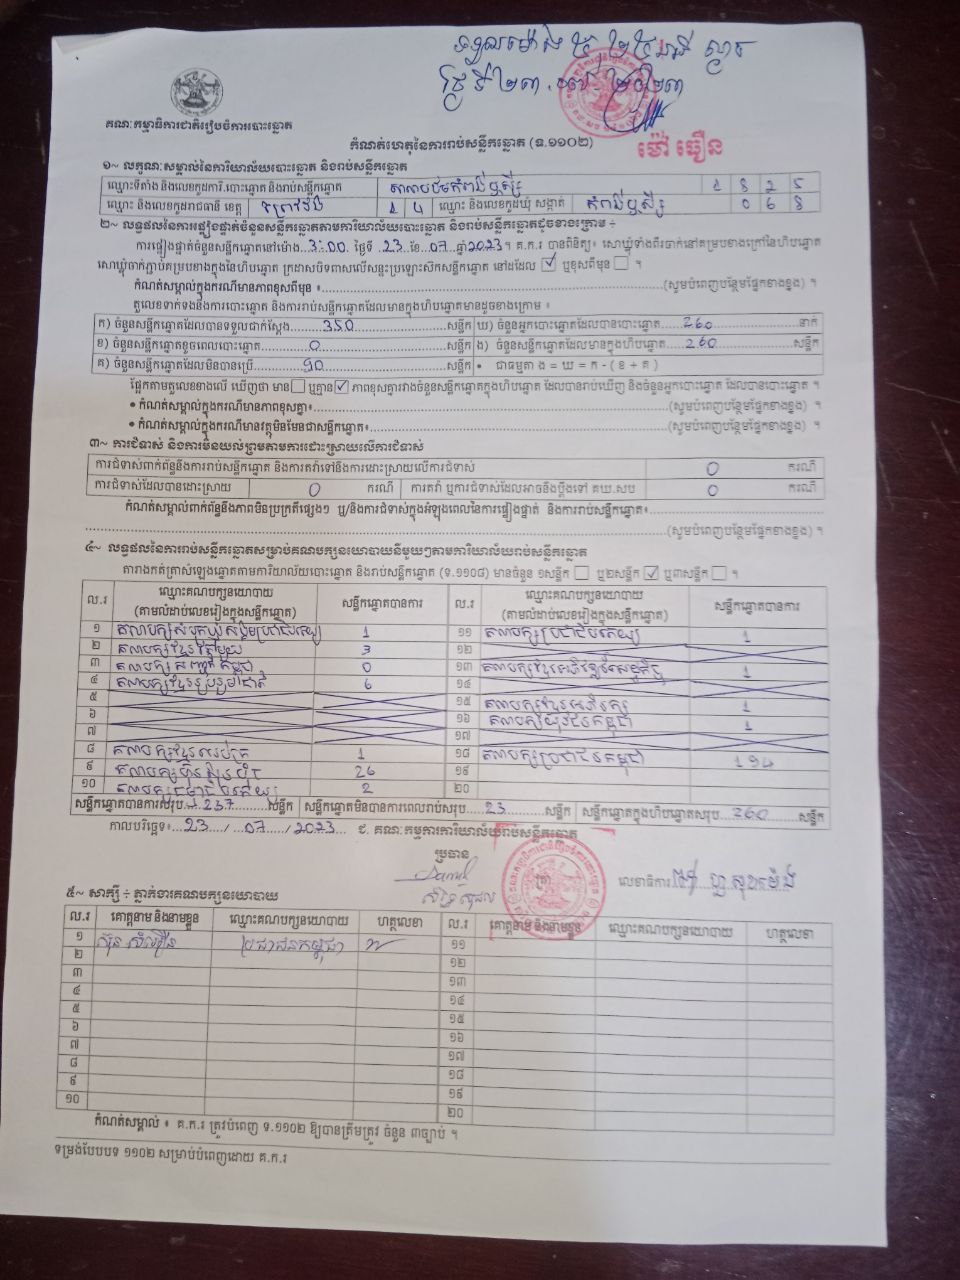 ទទួលម៉ោង ៥ ២៥ នាទី ល្ងាច
ថ្ងៃទី ២៣ . ០៧ . ២០២៣
គណៈកម្មាធិការជាតិរៀបចំការបោះឆ្នោត
កំណត់ហេតុនៃការរាប់សន្លឹកឆ្នោត (ទ.១១០២)
ម៉ៅ ធឿន
១~ លក្ខណៈសម្គាល់នៃការិយាល័យបោះឆ្នោត និងរាប់សន្លឹកឆ្នោត
ឈ្មោះទីតាំង និងលេខកូដការិ.បោះឆ្នោត និងរាប់សន្លឹកឆ្នោត
ឈ្មោះ និងលេខកូដរាជធានី ខេត្ត ព្រៃវែង 1 4 ឈ្មោះ និងលេខកូដឃុំ សង្កាត់ កំពង់ឫស្សី 0 6 8
២~ លទ្ធផលនៃការផ្ទៀងផ្ទាត់ចំនួនសន្លឹកឆ្នោតតាមការិយាល័យបោះឆ្នោត និងរាប់សន្លឹកឆ្នោតដូចខាងក្រោម ÷
ការផ្ទៀងផ្ទាត់ចំនួនសន្លឹកឆ្នោតនៅម៉ោង 3:00 ថ្ងៃទី 23 ខែ 07 ឆ្នាំ 2023 ។ គ.ក.រ បានពិនិត្យ៖ សោឃ្លុំទាំងពីរចាក់នៅគម្របខាងក្រៅនៃហិបឆ្នោត
សោឃ្លុំចាក់ភ្ជាប់គម្របខាងក្នុងនៃហិបឆ្នោត ក្រដាសបិទពាសលើសន្ទះប្រឡោះសិកសន្លឹកឆ្នោត នៅដដែល ☑ ឬខុសពីមុន ☐ ។
កំណត់សម្គាល់ក្នុងករណីមានភាពខុសពីមុន ៖ (សូមបំពេញបន្ថែមផ្នែកខាងខ្នង) ។
តួលេខទាក់ទងនឹងការបោះឆ្នោត និងការរាប់សន្លឹកឆ្នោតដែលមានក្នុងហិបឆ្នោតមានដូចខាងក្រោម ៖
ក) ចំនួនសន្លឹកឆ្នោតដែលបានទទួលជាក់ស្តែង 350 សន្លឹក ឃ) ចំនួនអ្នកបោះឆ្នោតដែលបានបោះឆ្នោត 260 នាក់
ខ) ចំនួនសន្លឹកឆ្នោតខូចពេលបោះឆ្នោត 0 សន្លឹក ង) ចំនួនសន្លឹកឆ្នោតដែលមានក្នុងហិបឆ្នោត 260 សន្លឹក
គ) ចំនួនសន្លឹកឆ្នោតដែលមិនបានប្រើ 90 សន្លឹក • ជាធម្មតា ង = ឃ = ក - ( ខ + គ )
ផ្អែកតាមតួលេខខាងលើ ឃើញថា មាន ☐ ឬគ្មាន ☑ ភាពខុសគ្នារវាងចំនួនសន្លឹកឆ្នោតក្នុងហិបឆ្នោត ដែលបានរាប់ឃើញ និងចំនួនអ្នកបោះឆ្នោត ដែលបានបោះឆ្នោត ។
• កំណត់សម្គាល់ក្នុងករណីមានភាពខុសគ្នា៖ (សូមបំពេញបន្ថែមផ្នែកខាងខ្នង) ។
• កំណត់សម្គាល់ក្នុងករណីមានវត្ថុមិនមែនជាសន្លឹកឆ្នោត៖ (សូមបំពេញបន្ថែមផ្នែកខាងខ្នង) ។
៣~ ការជំទាស់ និងការមិនយល់ព្រមតាមការដោះស្រាយលើការជំទាស់
ការជំទាស់ពាក់ព័ន្ធនឹងការរាប់សន្លឹកឆ្នោត និងការតវ៉ាទៅនឹងការដោះស្រាយលើការជំទាស់ 0 ករណី
ការជំទាស់ដែលបានដោះស្រាយ 0 ករណី ការតវ៉ា ឬការជំទាស់ដែលអាចនឹងប្តឹងទៅ គឃ.សប 0 ករណី
កំណត់សម្គាល់ពាក់ព័ន្ធនឹងភាពមិនប្រក្រតីផ្សេងៗ ឬ/និងការជំទាស់ក្នុងអំឡុងពេលនៃការផ្ទៀងផ្ទាត់ និងការរាប់សន្លឹកឆ្នោត៖
(សូមបំពេញបន្ថែមផ្នែកខាងខ្នង) ។
៤~ លទ្ធផលនៃការរាប់សន្លឹកឆ្នោតសម្រាប់គណបក្សនយោបាយនីមួយៗតាមការិយាល័យរាប់សន្លឹកឆ្នោត
តារាងកត់ត្រាសំឡេងឆ្នោតតាមការិយាល័យបោះឆ្នោត និងរាប់សន្លឹកឆ្នោត (ទ.១១០៨) មានចំនួន ១សន្លឹក ☐ ឬ២សន្លឹក ☑ ឬ៣សន្លឹក ☐ ។
ល.រ ឈ្មោះគណបក្សនយោបាយ (តាមលំដាប់លេខរៀងក្នុងសន្លឹកឆ្នោត) សន្លឹកឆ្នោតបានការ ល.រ ឈ្មោះគណបក្សនយោបាយ (តាមលំដាប់លេខរៀងក្នុងសន្លឹកឆ្នោត) សន្លឹកឆ្នោតបានការ
១ គណបក្សសំបុកឃ្មុំសង្គមប្រជាធិបតេយ្យ 1 ១១ គណបក្សប្រជាធិបតេយ្យ 1
២ គណបក្សខ្មែរតែមួយ 3 ១២
៣ គណបក្ស កម្ពុជា 0 ១៣ គណបក្សខ្មែរអភិវឌ្ឍន៍សេដ្ឋកិច្ច 1
៤ គណបក្សខ្មែររួបរួមជាតិ 6 ១៤
៥ ១៥ គណបក្សខ្មែរអភិរក្ស 1
៦ ១៦ គណបក្សយុវជនកម្ពុជា 1
៧ ១៧
៨ គណបក្សខ្មែរឈប់ក្រ 1 ១៨ គណបក្សប្រជាជនកម្ពុជា 194
៩ គណបក្សហ៊្វុនស៊ិនប៉ិច 26 ១៩
១០ គណបក្ស 2 ២០
សន្លឹកឆ្នោតបានការសរុប 237 សន្លឹក សន្លឹកឆ្នោតមិនបានការពេលរាប់សរុប 23 សន្លឹក សន្លឹកឆ្នោតក្នុងហិបឆ្នោតសរុប 260 សន្លឹក
កាលបរិច្ឆេទ៖ 23 / 07 / 2023 ជ. គណៈកម្មការការិយាល័យរាប់សន្លឹកឆ្នោត
ប្រធាន
លេខាធិការ
៥~ សាក្សី ÷ ភ្នាក់ងារគណបក្សនយោបាយ
ល.រ គោត្តនាម និងនាមខ្លួន ឈ្មោះគណបក្សនយោបាយ ហត្ថលេខា ល.រ គោត្តនាម និងនាមខ្លួន ឈ្មោះគណបក្សនយោបាយ ហត្ថលេខា
១ ប្រជាជនកម្ពុជា ១១
២ ១២
៣ ១៣
៤ ១៤
៥ ១៥
៦ ១៦
៧ ១៧
៨ ១៨
៩ ១៩
១០ ២០
កំណត់សម្គាល់ ៖ គ.ក.រ ត្រូវបំពេញ ទ.១១០២ ឱ្យបានត្រឹមត្រូវ ចំនួន ៣ច្បាប់ ។
ទម្រង់បែបបទ ១១០២ សម្រាប់បំពេញដោយ គ.ក.រ